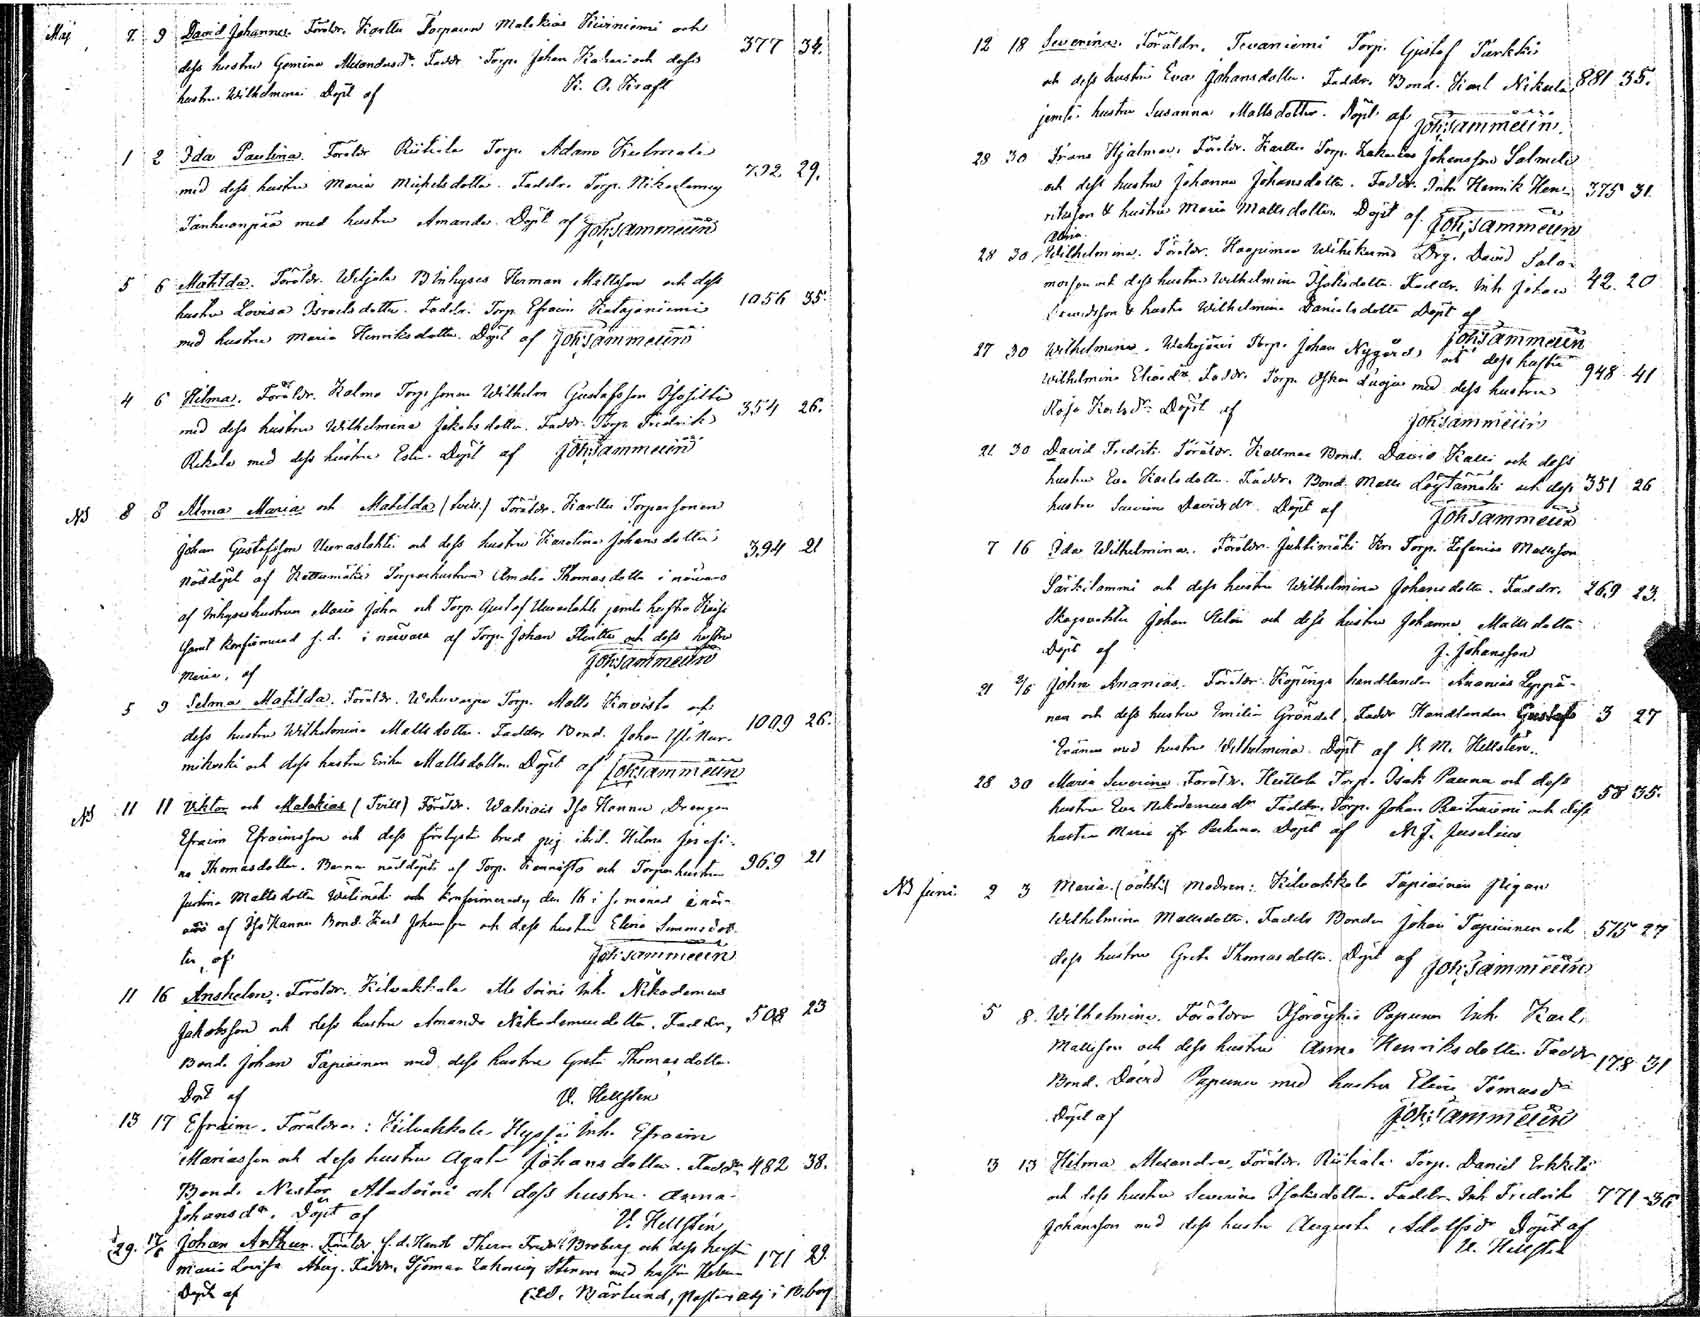 Maj 7. 9 David Johannes. Föräldr. Karttu Torparen Malakias Kiviniemi och
dess hustru Gemina Alexandersdr. Faddr. Torp. Johan Kahari och dess 377 34.
hustru Wilhelmina Döpt af K. O. Kraft
1 2 Ida Paulina. Föräldr Riitiala Torp. Adam Kulmala
med dess hustru Maria Mickelsdotter. Faddr. Torp. Nikodemus 792. 29.
Tanhuanpää med hustru Amanda. Döpt af Joh. Sammelin
5 6 Matilda. Föräldr. Wiljala Inhyses Herman Mattsson och dess
hustru Lovisa Israelsdotter. Faddr. Torp. Efraim Katajaniemi 1056 35
med hustru Maria Henriksdotter. Döpt af Joh. Sammelin
4 6 Hilma. Föräldr. Kalmo Torp.sonen Wilhelm Gustafsson
med dess hustru Wilhelmina Jakobsdotter. Faddr. Torp. Fredrik 354 26.
med dess hustru Eva. Döpt af Joh. Sammelin
NB 8 8 Alma Maria och Matilda (tvill.) Föräldr. Karttu Torparsonen
Johan Gustafsson Uunaslahti och dess hustru Karolina Johansdotter 394 21
nöddöpt af Kettumäki Torparehustrun Amalia Thomasdotter i närvaro
af Inhyseshustrun Maria Johan och Torp. Gustaf Uunaslahti jemte hustru
samt konfirmerad s.d. i närvaro af Torp. Johan och dess hustru
Maria, af Joh. Sammelin
5 9 Selma Matilda. Föräldr. Torp. Matts Koivisto och
dess hustru Wilhelmina Mattsdotter. Faddr. Bond. Johan Yli Nur- 1009 26.
mikoski och dess hustru Erika Mattsdotter. Döpt af Joh. Sammelin
NB 11 11 Viktor och Malakias (Tvill) Föräldr. Iso Hannu Drengen
Efraim Efraimsson och dess förlofvade brud pig. ibid. Hilma Josefi-
na Thomasdotter. Barnen nöddöpta af Torp. och Torparhustrun 969 21
Justina Mattsdotter Wälimäki och konfirmerade den 16 i s. månad i när-
varo af Iso Hannu Bond. Karl Johansson och dess hustru Elina Simonsdot-
ter, af Joh. Sammelin
11 16 Anshelm. Föräldr. Kilvakkala Ala Soini Inh. Nikodemus
Jakobsson och dess hustru Amanda Nikodemusdotter. Faddr, 508 23
Bond. Johan Tapiainen med dess hustru Greta Thomasdotter.
Döpt af V. Hellsten
13 17 Efraim. Föräldrar: Kilvakkala Hyppä Inh. Efraim
Mariasson och dess hustru Agata Johansdotter. Faddr. 482 38.
Bond. Nestor Ala Soini och dess hustru Anna
Johansdr. Döpt af V. Hellstén
29. 17/5 Johan Arthur. Föräldr. f.d. Handl. Fredr. Broberg och dess hustru 171 29.
Maria Lovisa Åberg. Faddr. Sjöman Zakarias Stenroos med hustru Helena
Döpt af Ed. Björlund, pastors adj i B.borg
12 18 Severina. Föräldr. Tevaniemi Torp. Gustaf Turkki
och dess hustru Eva Johansdotter. Faddr. Bond. Karl Nikula 881 35.
jemte hustru Susanna Mattsdotter. Döpt af Joh. Sammelin.
28 30 Frans Hjalmar. Föräldr. Karttu Torp. Zakarias Johansson Salmela
och dess hustru Johanna Johansdotter. Faddr. Inh. Henrik Hen- 375 31.
riksson & hustru Maria Mattsdotter. Döpt af Joh. Sammelin
28 30 Maria Wilhelmina. Föräldr. Haapimaa Drg. David Salo-
monsson och dess hustru Wilhelmina Isaksdotter. Faddr. Inh Johan 42. 20
& hustru Wilhelmina Danielsdotter Döpt af
Joh. Sammelin
27 30 Wilhelmina. Torp. Johan Nygård och dess hustru
Wilhelmina Eliaedr. Faddr. Torp. Oskar med dess hustru 948 41
Kajsa Karlsdr. Döpt af Joh. Sammelin
21 30 David Fredrik. Föräldr. Kallmaa Bond. David Kalli och dess
hustru Eva Karlsdotter. Faddr. Bond. Matts Löytömäki och dess 351 26
hustru Davidsdr. Döpt af Joh Sammelin
7 16 Ida Wilhelmina. Föräldr. Juhtimäki Torp. Zefanias Mattsson
Särkilammi och dess hustru Wilhelmina Johansdotter. Faddr. 269 23.
Skogsvakten Johan och dess hustru Johanna Mattsdotter
Döpt af J. Johansson
21 2/6 John Ananias. Föräldr. Köpings handlanden Ananias Leppä-
nen och dess hustru Emilia Gröndal. Faddr Handlanden Gustaf 3 27
Eränen med hustru Wilhelmina. Döpt af K. M. Hellstén.
28 30 Maria Severina. Föräldr. Heittola Torp. Isak Paunu och dess 58 35.
hustru Eva Nikodemusdr. Faddr. Torp. Johan Rautaniemi och dess
hustru Maria ifr. Parkano. Döpt af M. J. Juselius
NB Juni. 2 3 Maria. (oäkta) Modren: Kilvakkala Tapiainen Pigan
Wilhelmina Mattsdotter. Faddr. Bonden Johan Tapiainen och 515 27
dess hustru Greta Thomasdotter. Döpt af Joh. Sammelin
5 8. Wilhelmina. Föräldr. Isoröyhiö Papunen Inh. Karl
Mattsson och dess hustru Anna Henriksdotter. Faddr 178 31
Bond. David Papunen med hustru Elina Tomasdr
Döpt af Joh. Sammelin
3 13 Hilma Alexandra. Föräldr. Riitiala Torp. Daniel Erkkilä
och dess hustru Severina Isaksdotter. Faddr. Inh Fredrik 771 36
Johansson med dess hustru Augusta Adolfsdr Döpt af
V. Hellsten